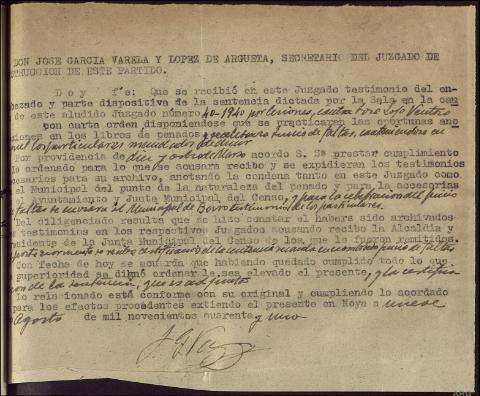 DON JOSE GARCIA VARELA Y LOPEZ DE ARGUETA, SECRETARIO DEL JUZGADO DE
TRUCCION DE ESTE PARTIDO.
Doy fe: Que se recibió en este Juzgado testimonio del en-
bezado y parte dispositiva de la sentencia dictada por la Sala en la cau
de este aludido Juzgado número 40-1940 por lesiones, contra
con carta orden disponiéndose que se practicaran las oportunas ano
ciones en los libros de penados y juicio de faltas,
los particulares
Por providencia de diez y ocho de Marzo acordo S. Sª prestar cumplimiento
lo ordenado para lo que se acusara recibo y se expidieran los testimonios
cesarios para su archivo, anotando la condena tanto en este Juzgado como
el Municipal del punto de la naturaleza del penado y para la accesorias
el Ayuntamiento y Junta Municipal del Censo, y para la celebración del juicio
faltas se envia al Municipal de testimonio de los particulares.
Del diligenciado resulta que se hizo constar el haber sido archivados
testimonios en los respectivos Juzgados acusando recibo la Alcaldia y
residente de la Junta Municipal del Censo de los que le fueron remitidos.
se recibio certificacion de la sentencia recaida en juicio de faltas
Con fecha de hoy se acordia que habiendo quedado cumplido todo lo que
superioridad se dignó ordenar le sea elevado el presente, y la certifica
ion de la sentencia, que es adjunto
lo relacionado está conforme con su original y cumpliendo lo acordado
para los efectos procedentes extiendo el presente en Noya a nueve
Agosto de mil novecientos cuarenta y uno